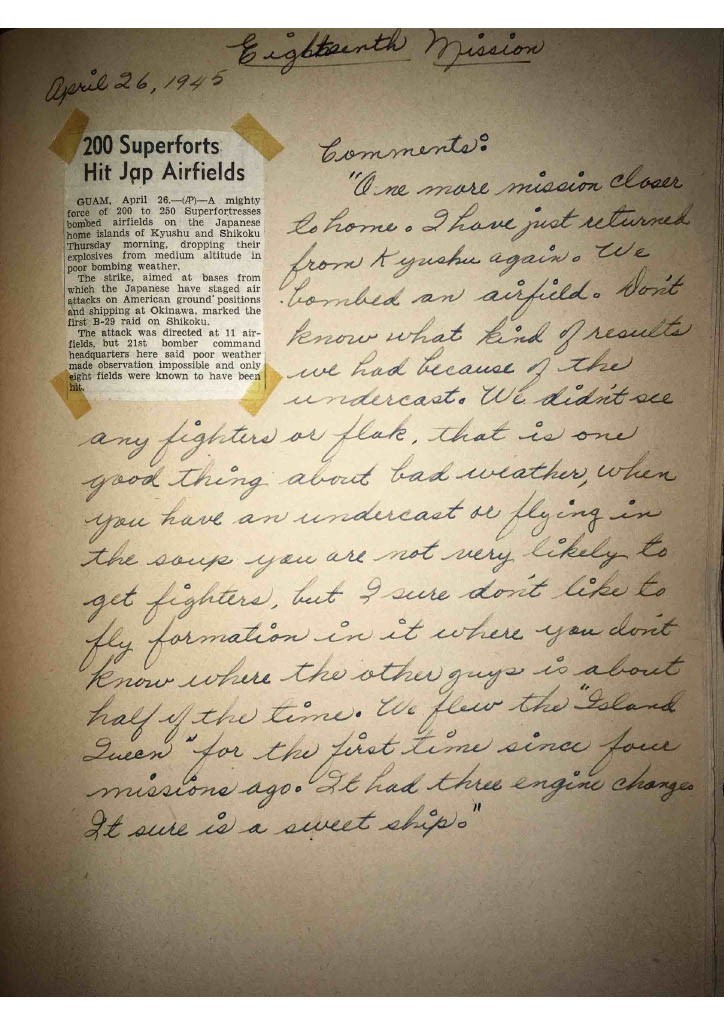 Eighteenth Mission
April 26, 1945
200 Superforts
Hit Jap Airfields
GUAM, April 26.—(AP)—A mighty
force of 200 to 250 Superfortresses
bombed airfields on the Japanese
home islands of Kyushu and Shikoku
Thursday morning, dropping their
explosives from medium altitude in
poor bombing weather.
The strike, aimed at bases from
which the Japanese have staged air
attacks on American ground positions
and shipping at Okinawa, marked the
first B-29 raid on Shikoku.
The attack was directed at 11 air-
fields, but 21st bomber command
headquarters here said poor weather
made observation impossible and only
eight fields were known to have been
hit.
Comments:
"One more mission closer
to home. I have just returned
from Kyushu again. We
bombed an airfield. Don't
know what kind of results
we had because of the
undercast. We didn't see
any fighters or flak, that is one
good thing about bad weather, when
you have an undercast or flying in
the soup you are not very likely to
get fighters, but I sure don't like to
fly formation in it where you don't
know where the other guys is about
half of the time. We flew the "Island
Queen" for the first time since four
missions ago. It had three engine changes
It sure is a sweet ship."